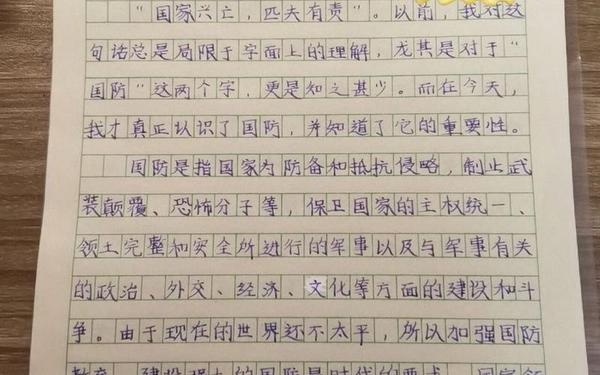 “国家兴亡，匹夫有责”。以前，我对这
句话总是局限于字面上的理解，尤其是对于“
国防”这两个字，更是知之甚少。而在今天，
我才真正认识了国防，并知道了它的重要性。
国防是指国家为防备和抵抗侵略，制止武
装颠覆、恐怖分子等，保卫国家的主权统一、
领土完整和安全所进行的军事以及与军事有关
的政治、外交、经济、文化等方面的建设和斗
争。由于现在的世界还不太平，所以加强国防
教育，建设强大的国防是时代的要求，国家领